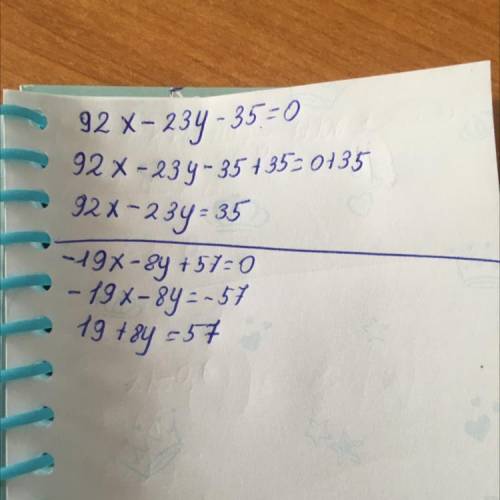 92x-23y-35=0
92x-23y-35+35=0+35
92x-23y=35
-19x-8y+57=0
-19x-8y=-57
19+8y=57